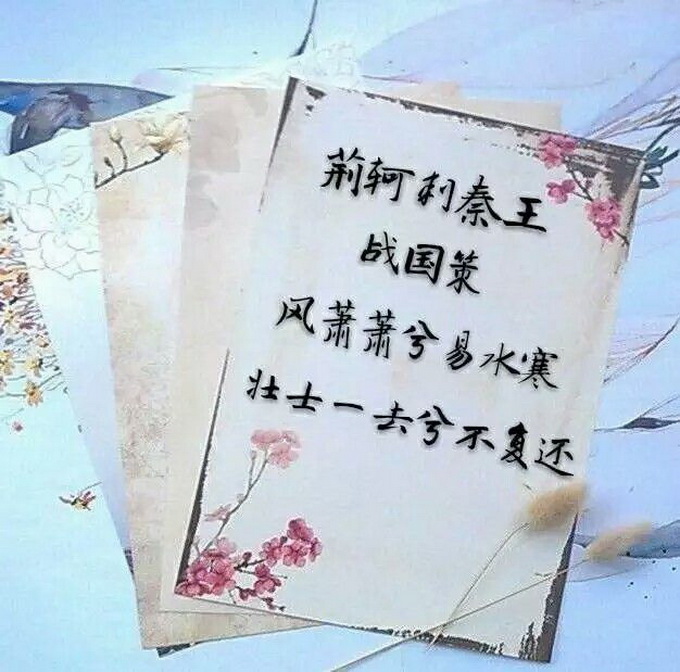 荆轲刺秦王
战国策
风萧萧兮易水寒
壮士一去兮不复还